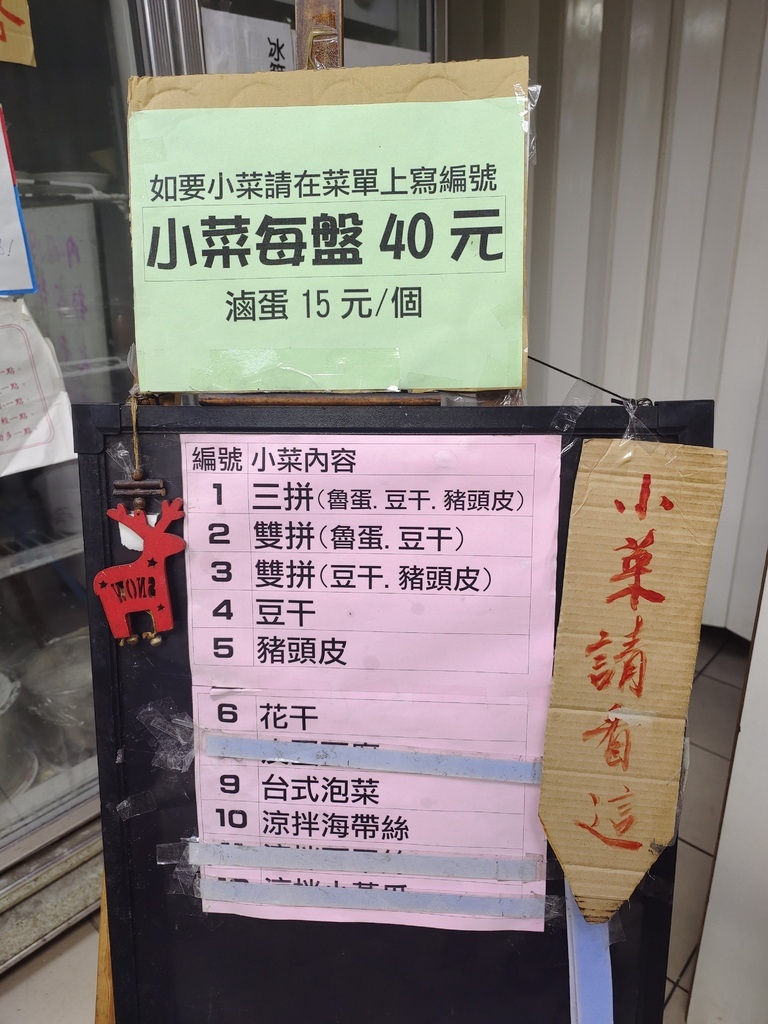 如要小菜請在菜單上寫編號
小菜每盤 40 元
滷蛋 15 元/個
編號 小菜內容
1 三拼(魯蛋. 豆干. 豬頭皮)
2 雙拼(魯蛋. 豆干)
3 雙拼(豆干. 豬頭皮)
4 豆干
5 豬頭皮
6 花干
9 台式泡菜
10 涼拌海帶絲
小菜請看這
SNOW
冰